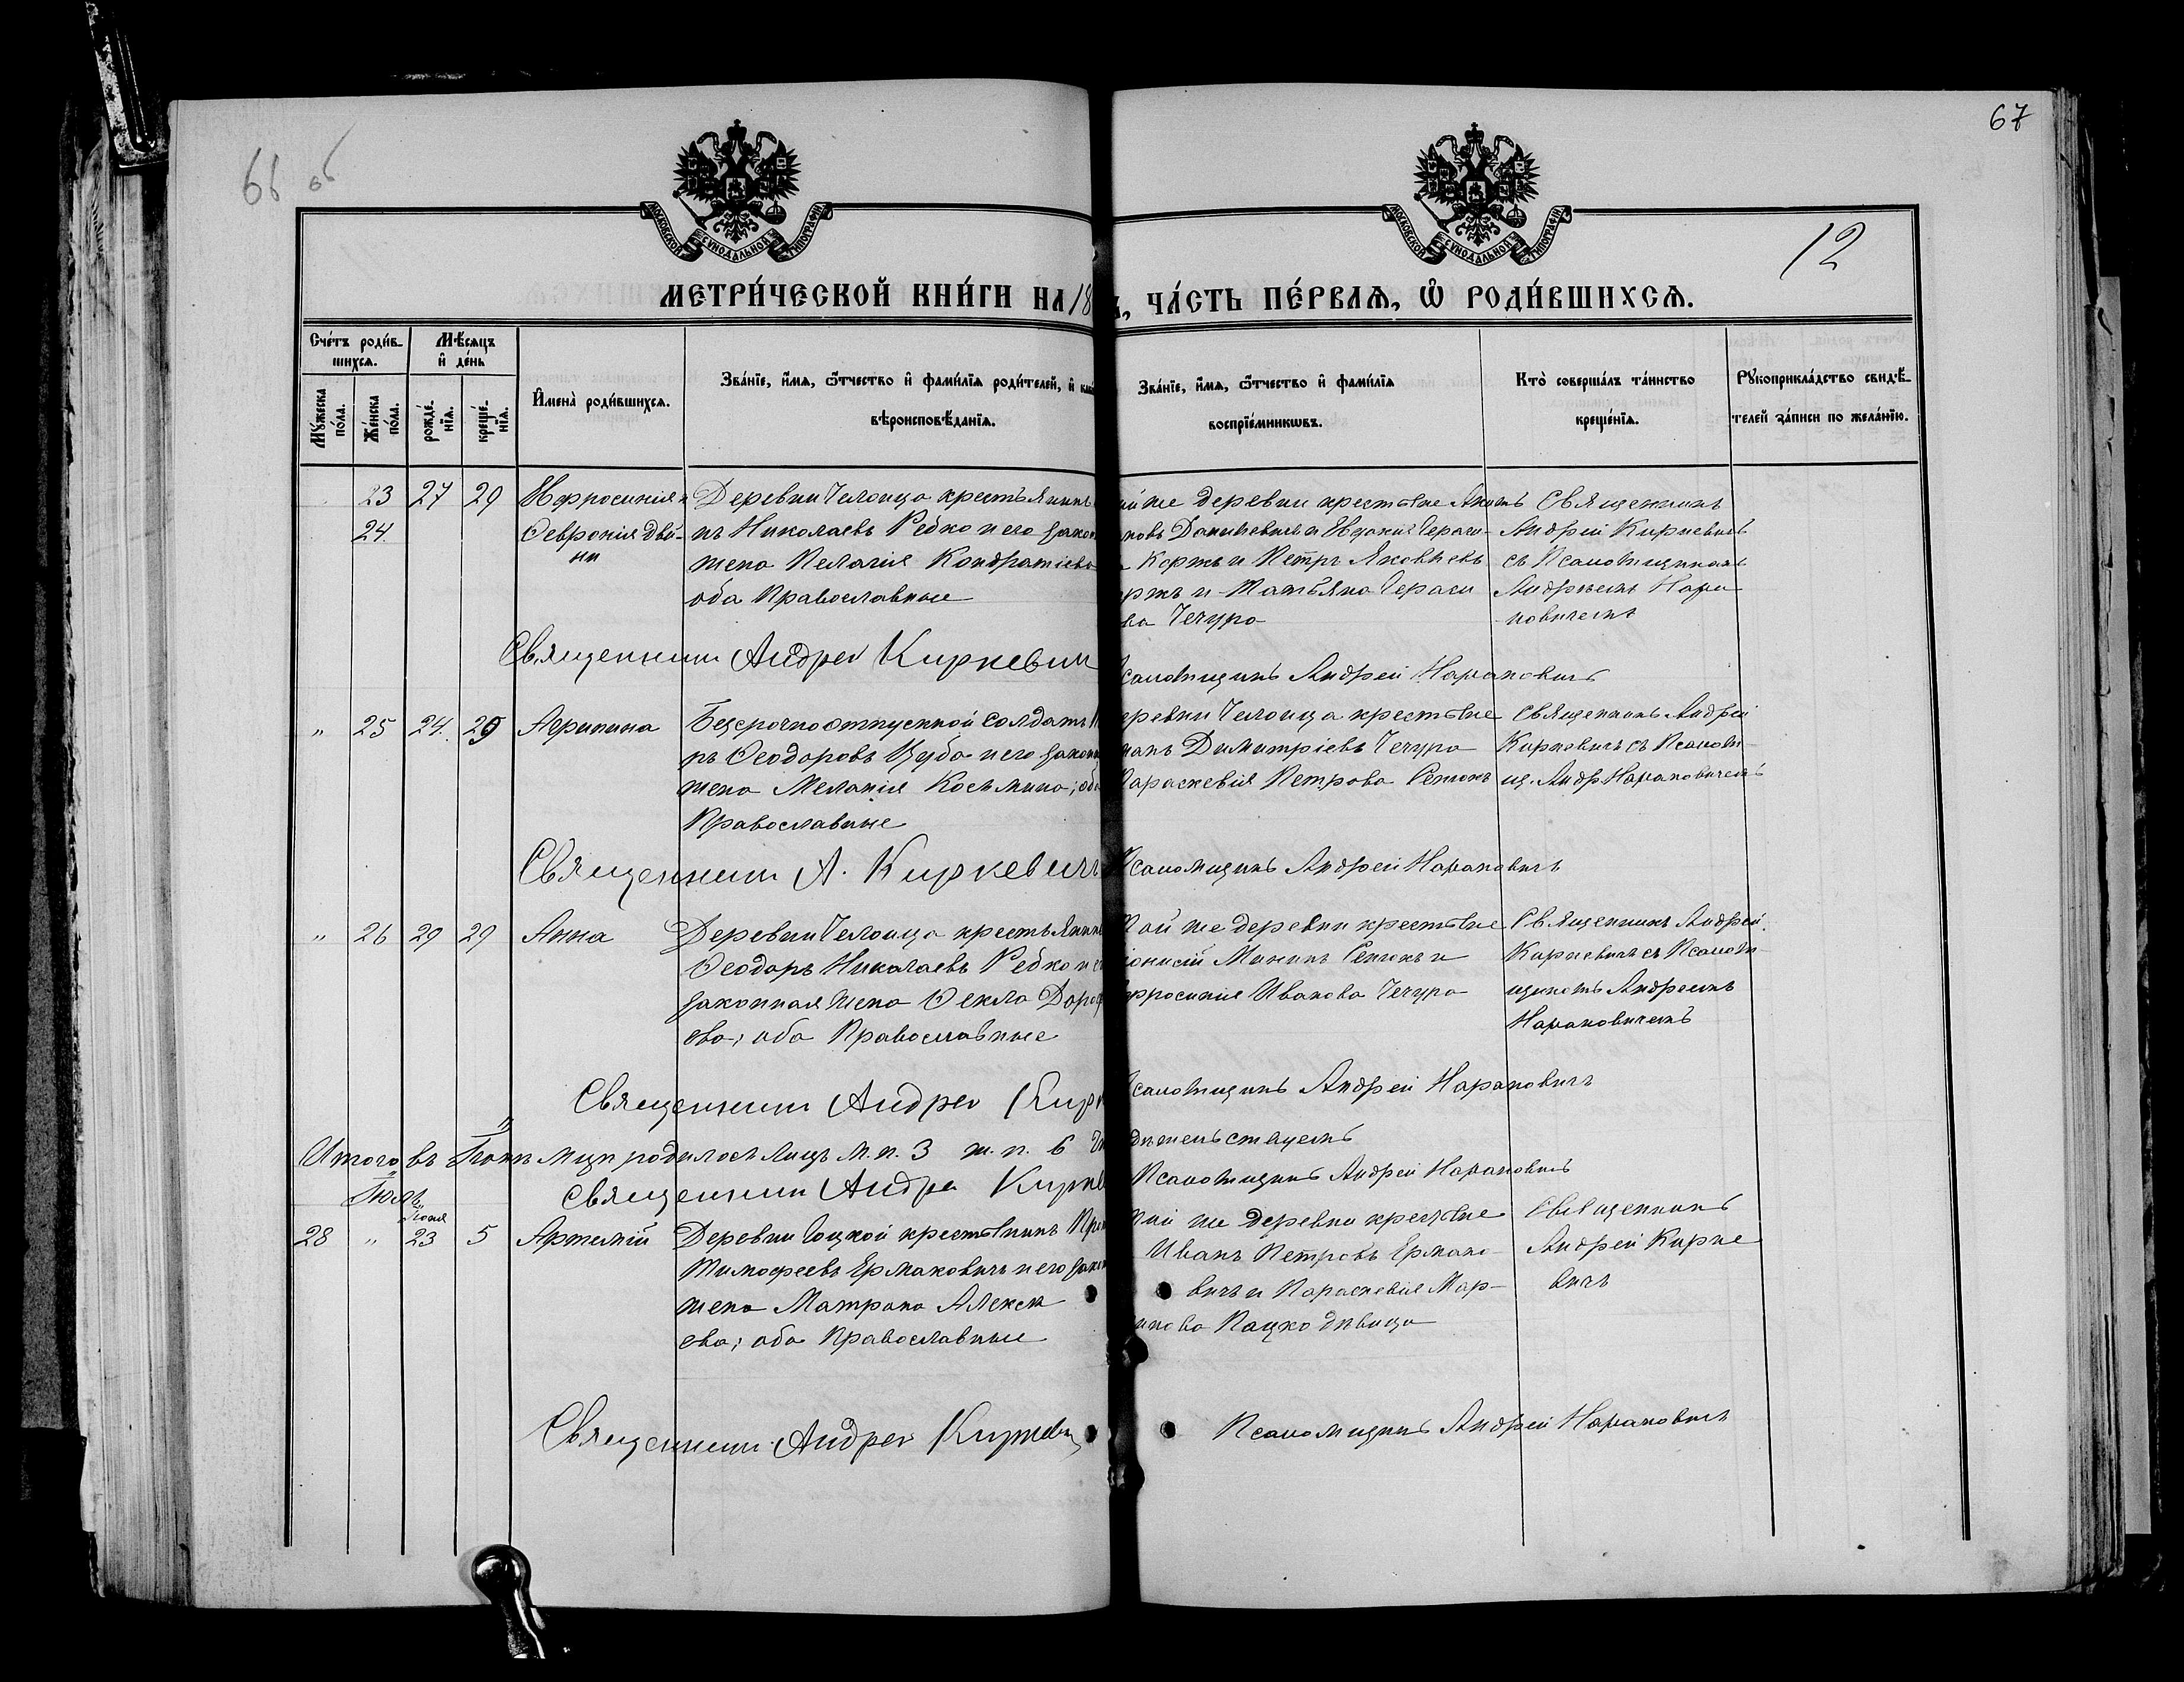 66 об
67
12
МОСКОВСКОЙ СѴНОДАЛЬНОЙ ТИПОГРАФІИ
МОСКОВСКОЙ СѴНОДАЛЬНОЙ ТИПОГРАФІИ
МЕТРИ́ЧЕСКОЙ КНИ́ГИ НА 18
, ЧА́СТЬ ПЕ́РВАѦ, Ѽ РОДИ́ВШИХСѦ.
Сче́тъ роди́в-
шихсѧ.
Мꙋ́жеска по́ла.
Же́нска по́ла.
Мѣ́сѧцъ
и҆ де́нь
рожде́-нїѧ.
креще́-нїѧ.
И҆мена̀ роди́вшихсѧ.
Зва́нїе, и҆́мѧ, ѻ҆́тчество и҆ фами́лїѧ роди́телей, и҆
вѣроисповѣ́данїѧ.
Зва́нїе, и҆́мѧ, ѻ҆́тчество и҆ фами́лїѧ
воспрїе́мникѡвъ.
Кто̀ соверша́лъ та́инство
креще́нїѧ.
Рꙋкоприкла́дство свидѣ́-
телей за́писи по жела́нїю.
23 27 29 Ефросинія и Деревни Челонца крестьянинъ
24. Февронія двой- нъ Николаевъ Редко и его закон
ни жена Пелагія Кондратіева
оба Православные
же деревни крестьяне
новъ Данилевичъ и Евдокія Гераси-
Коржъ и Петръ Яковлевъ
оржъ и Татьяна Гераси
ва Чечура
Священникъ
Андрей Киркевичъ
съ Псаломщикомъ
Андреемъ Нара
новичемъ
Священникъ Андрей Киркевич
саломщикъ Андрей Нарановичъ
" 25 24. 29 Агрипина Безсрочноотпускной солдатъ
ръ Ѳеодоровъ Цуба и его законн
жена Меланія Косьмина; оба
Православные
еревни Челонца крестьяне
Димитріевъ Чечура
Параскевія Петрова Сенюкъ
Священникъ Андрей
Киркевичъ съ Псалом-
щ. Андр Нарановичемъ
Священникъ А. Киркевичъ
Псаломщикъ Андрей Нарановичъ
" 26 29 29 Анна Деревни Челонца крестьянинъ
Ѳеодоръ Николаевъ Редко и е
законная жена Ѳекла Дороф
ева; оба Православные
Той же деревни крестьяне
іонисій Мининъ Сенюкъ и
фросинія Иванова Чечура
Священникъ Андрей
Киркевичъ съ Псалом-
щикомъ Андреемъ
Нарановичемъ
Священникъ Андрей Кирк
саломщикъ Андрей Нарановичъ
Итого въ Іюнѣ мцѣ родилось лицъ м. п. 3 ж. п. 6
Священникъ Андрей Кирке
Псаломщикъ Андрей Нарановичъ
Іюль
Іюня
28 " 23 5 Артемій Деревни Гоцкой крестьянинъ Про
Тимофеевъ Ермаковичъ и его закон
жена Матрона Алексе
ева; оба Православные
же деревни крестьяне
Иванъ Петровъ Ермако-
вичъ и Параскевія Мар-
нова Пацко дѣвица
Священникъ
Андрей Кирке
вичъ
Священникъ Андрей Киркевич
Псаломщикъ Андрей Нарановичъ